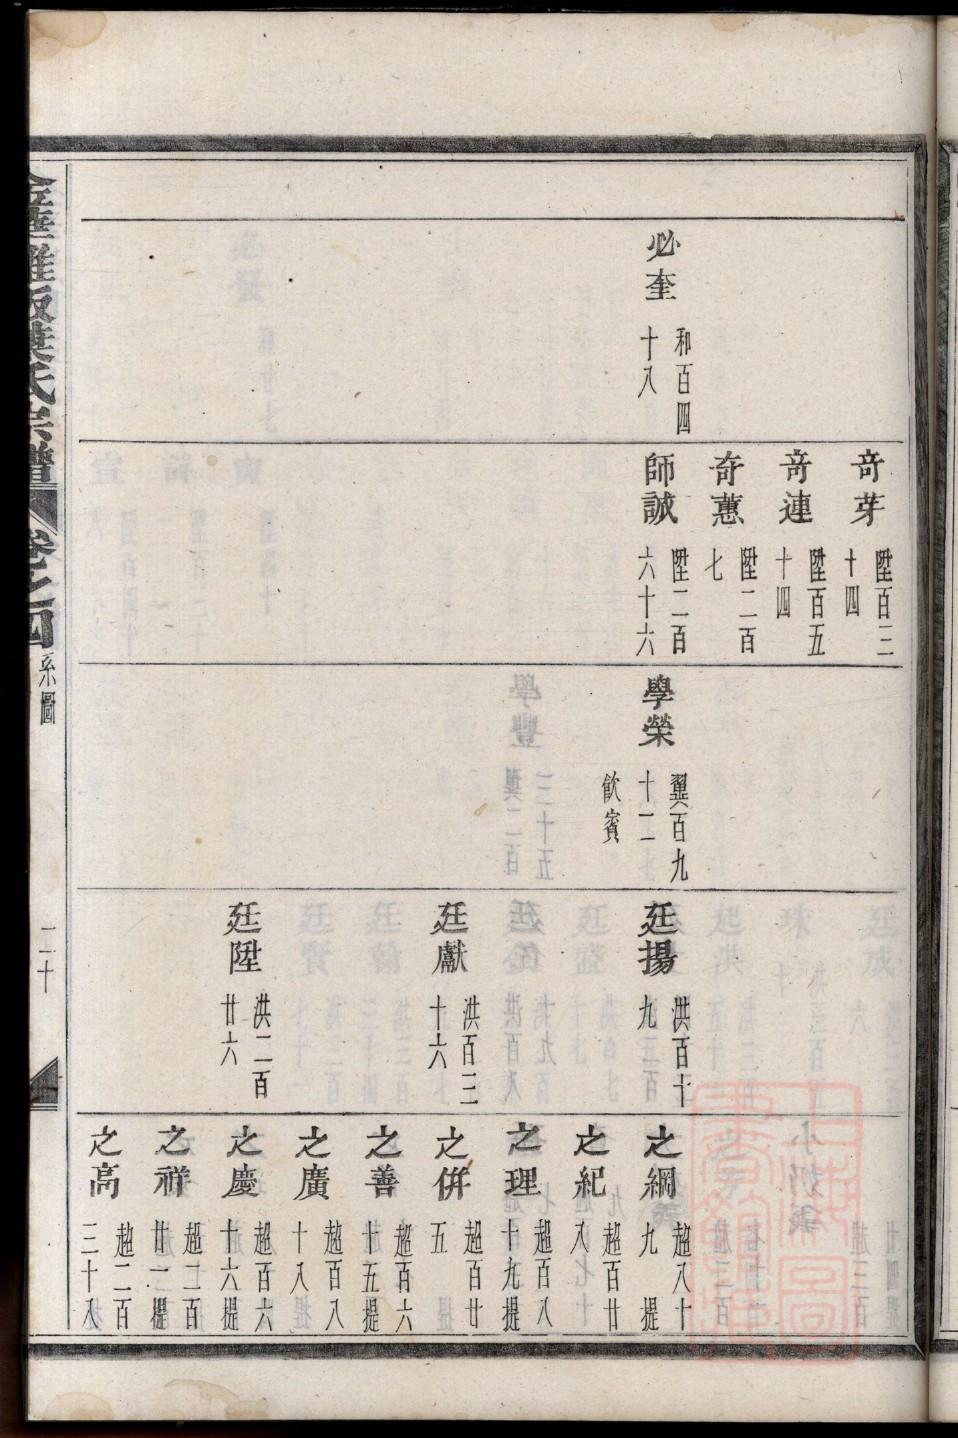 必奎
和百四
十八
奇芽
陞百三
十四
奇連
陞百五
十四
奇蕙
陞二百
七
師誠
陞二百
六十六
學榮
翼百九
十二
飲賓
廷揚
洪百十
九
廷獻
洪百三
十六
廷陞
洪二百
廿六
之綱
超八十
九 提
之紀
超百廿
八
之理
超百八
十九提
之併
超百廿
五
之善
超百六
廿五提
之廣
超百八
十八
之慶
超百六
十六提
之祥
超二百
廿一提
之高
超二百
三十八
葉氏宗譜 卷之四 系圖 二十